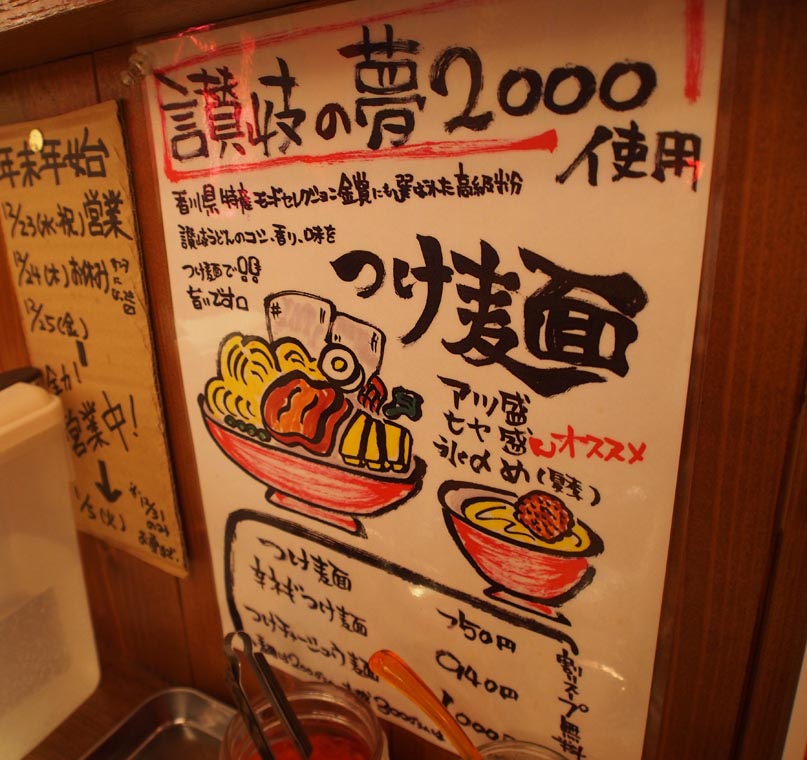 讃岐の夢2000
使用
香川県特産モンドセレクション金賞にも選ばれた高級粉
讃岐うどんのコシ、香り、味を
つけ麺で!!
旨いです。
つけ麺
アツ盛
ヒヤ盛
オススメ
氷〆め(夏季)
つけ麺 750円
辛ネギつけ麺 940円
つけチャーシュウ麺 1,000円
割りスープ無料
年末年始
12/23(水・祝)営業
12/24(木)お休み
12/25(金)
営業中!
1/5(火)